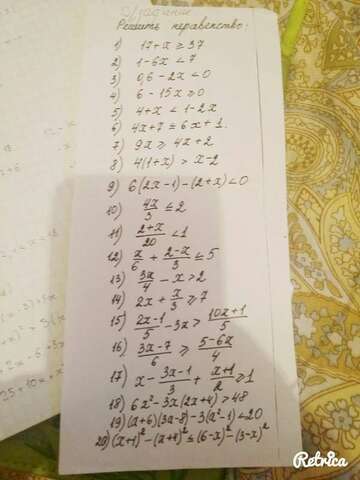 D/задание
Решить неравенство:
1) 17+x ≥ 37
2) 1-6x < 7
3) 0,6 - 2x < 0
4) 6 - 15x ≥ 0
5) 4+x < 1-2x
6) 4x+7 ≤ 6x+1.
7) 9x ≥ 4x+2
8) 4(1+x) > x-2
9) 6(2x-1)-(2+x)<0
10) 4x/3 ≤ 2
11) (2+x)/20 < 1
12) x/6 + (2-x)/3 ≤ 5
13) 3x/4 - x > 2
14) 2x + x/3 ≥ 7
15) (2x-1)/5 - 3x > (10x+1)/5
16) (3x-7)/6 ≥ (5-6x)/4
17) x - (3x-1)/3 + (x+1)/2 ≥ 1
18) 6x²-3x(2x+4)>48
19) (a+6)(3a-8)-3(a²-1)<20
20) (x+1)²-(x+4)² ≤ (6-x)²-(3-x)²
Retrica